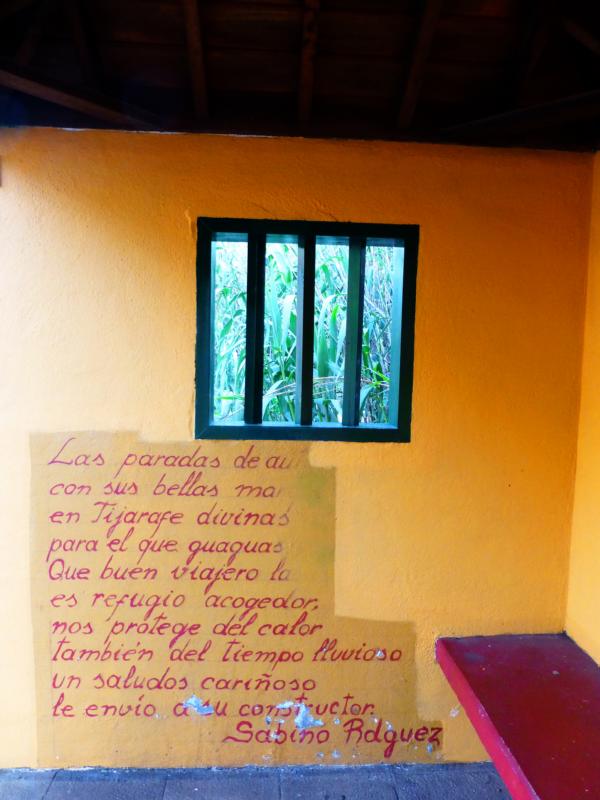 Las paradas de
con sus bellas
en Tijarafe divinas
para el que guaguas
Que buen viajero
es refugio acogedor,
nos protege del calor
también del tiempo lluvioso
un saludos cariñoso
le envio a su constructor
Sabino Rdguez